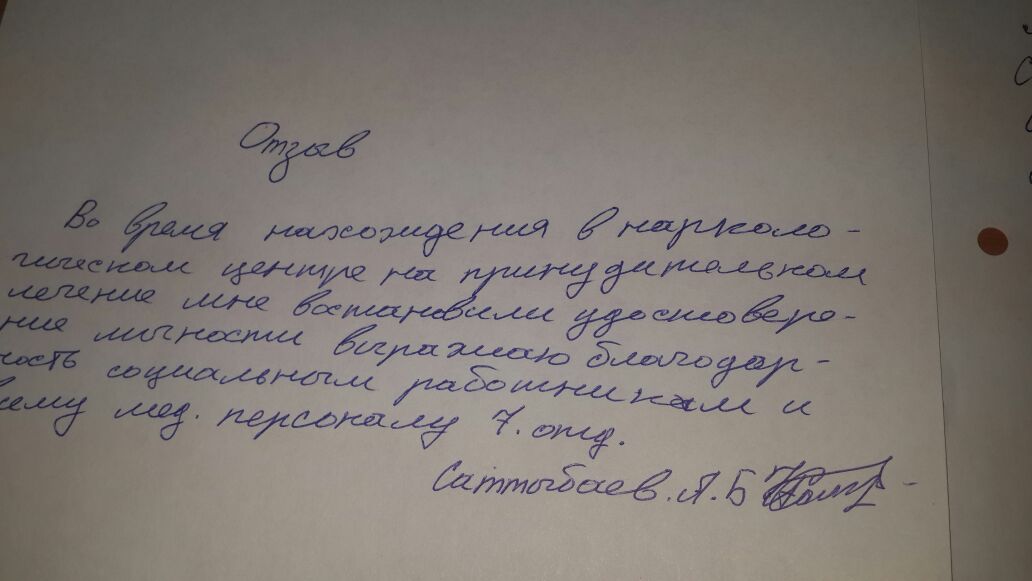 Отзыв
Во время нахождения в нарколо-
гическом центре на принудительном
лечение мне востановили удостовере-
ние личности выражаю благодар-
ность социальным работникам и
всему мед. персоналу 7. отд.
Саттыбаев. А. Б